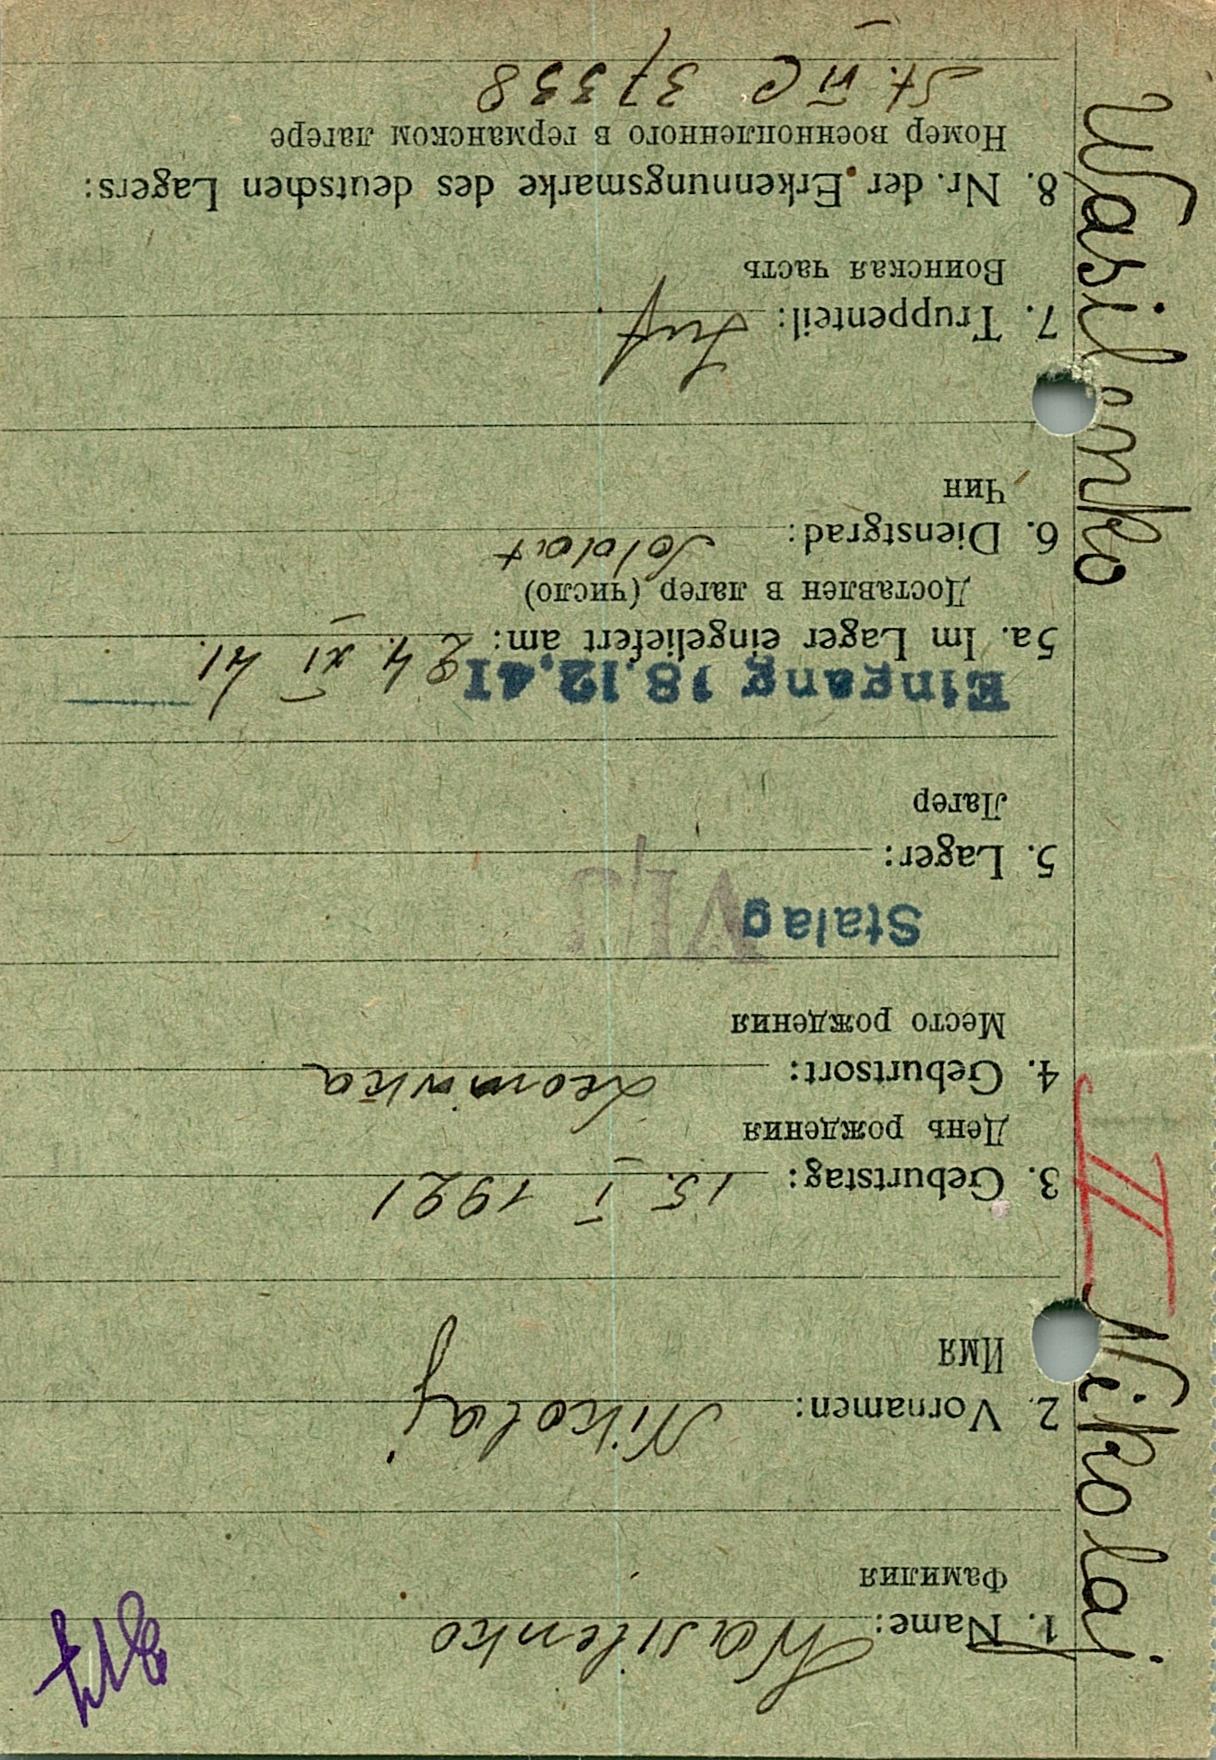 Wasilenko Nikolai
II
1. Name: Wasilenko
Фамилия
2. Vornamen: Nikolaj
Имя
3. Geburtstag: 15. I 1921
День рождения
4. Geburtsort:
Место рождения
Stalag VI/C
5. Lager:
Лагерь
Eingang 18.12.41
5a. Im Lager eingeliefert am: 24. XI 41.
Доставлен в лагер (число)
6. Dienstgrad: Soldat
Чин
7. Truppenteil: Inf.
Воинская часть
8. Nr. der Erkennungsmarke des deutschen Lagers:
Номер военнопленного в германском лагере
St. VI C 37558